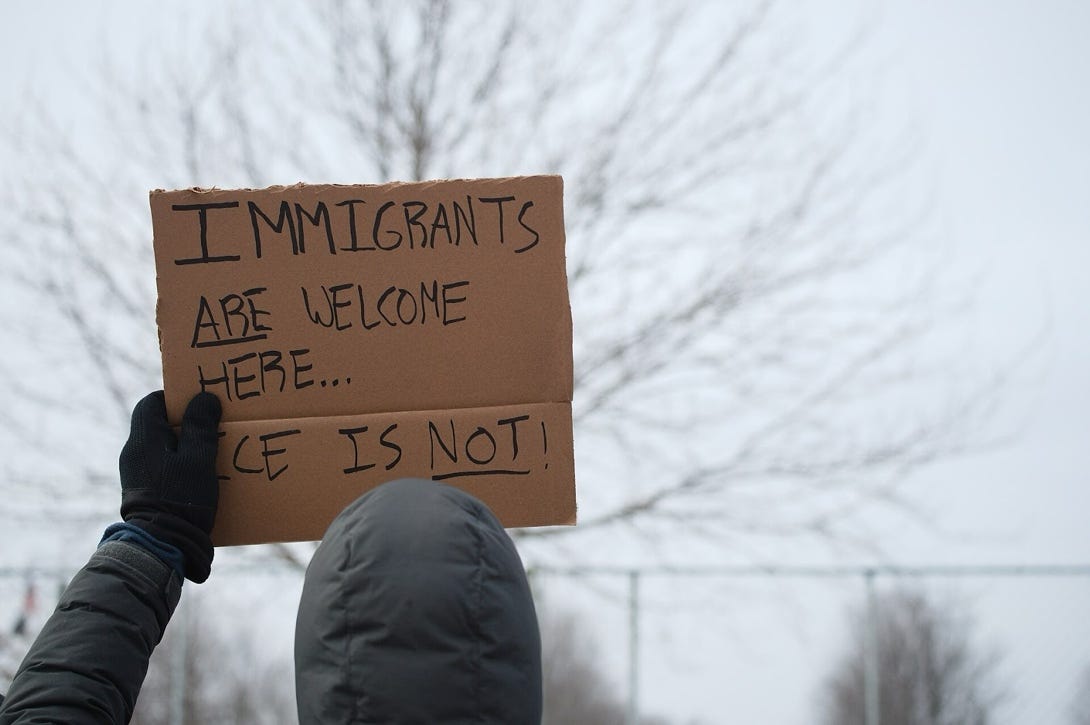 IMMIGRANTS
ARE WELCOME
HERE...
ICE IS NOT!